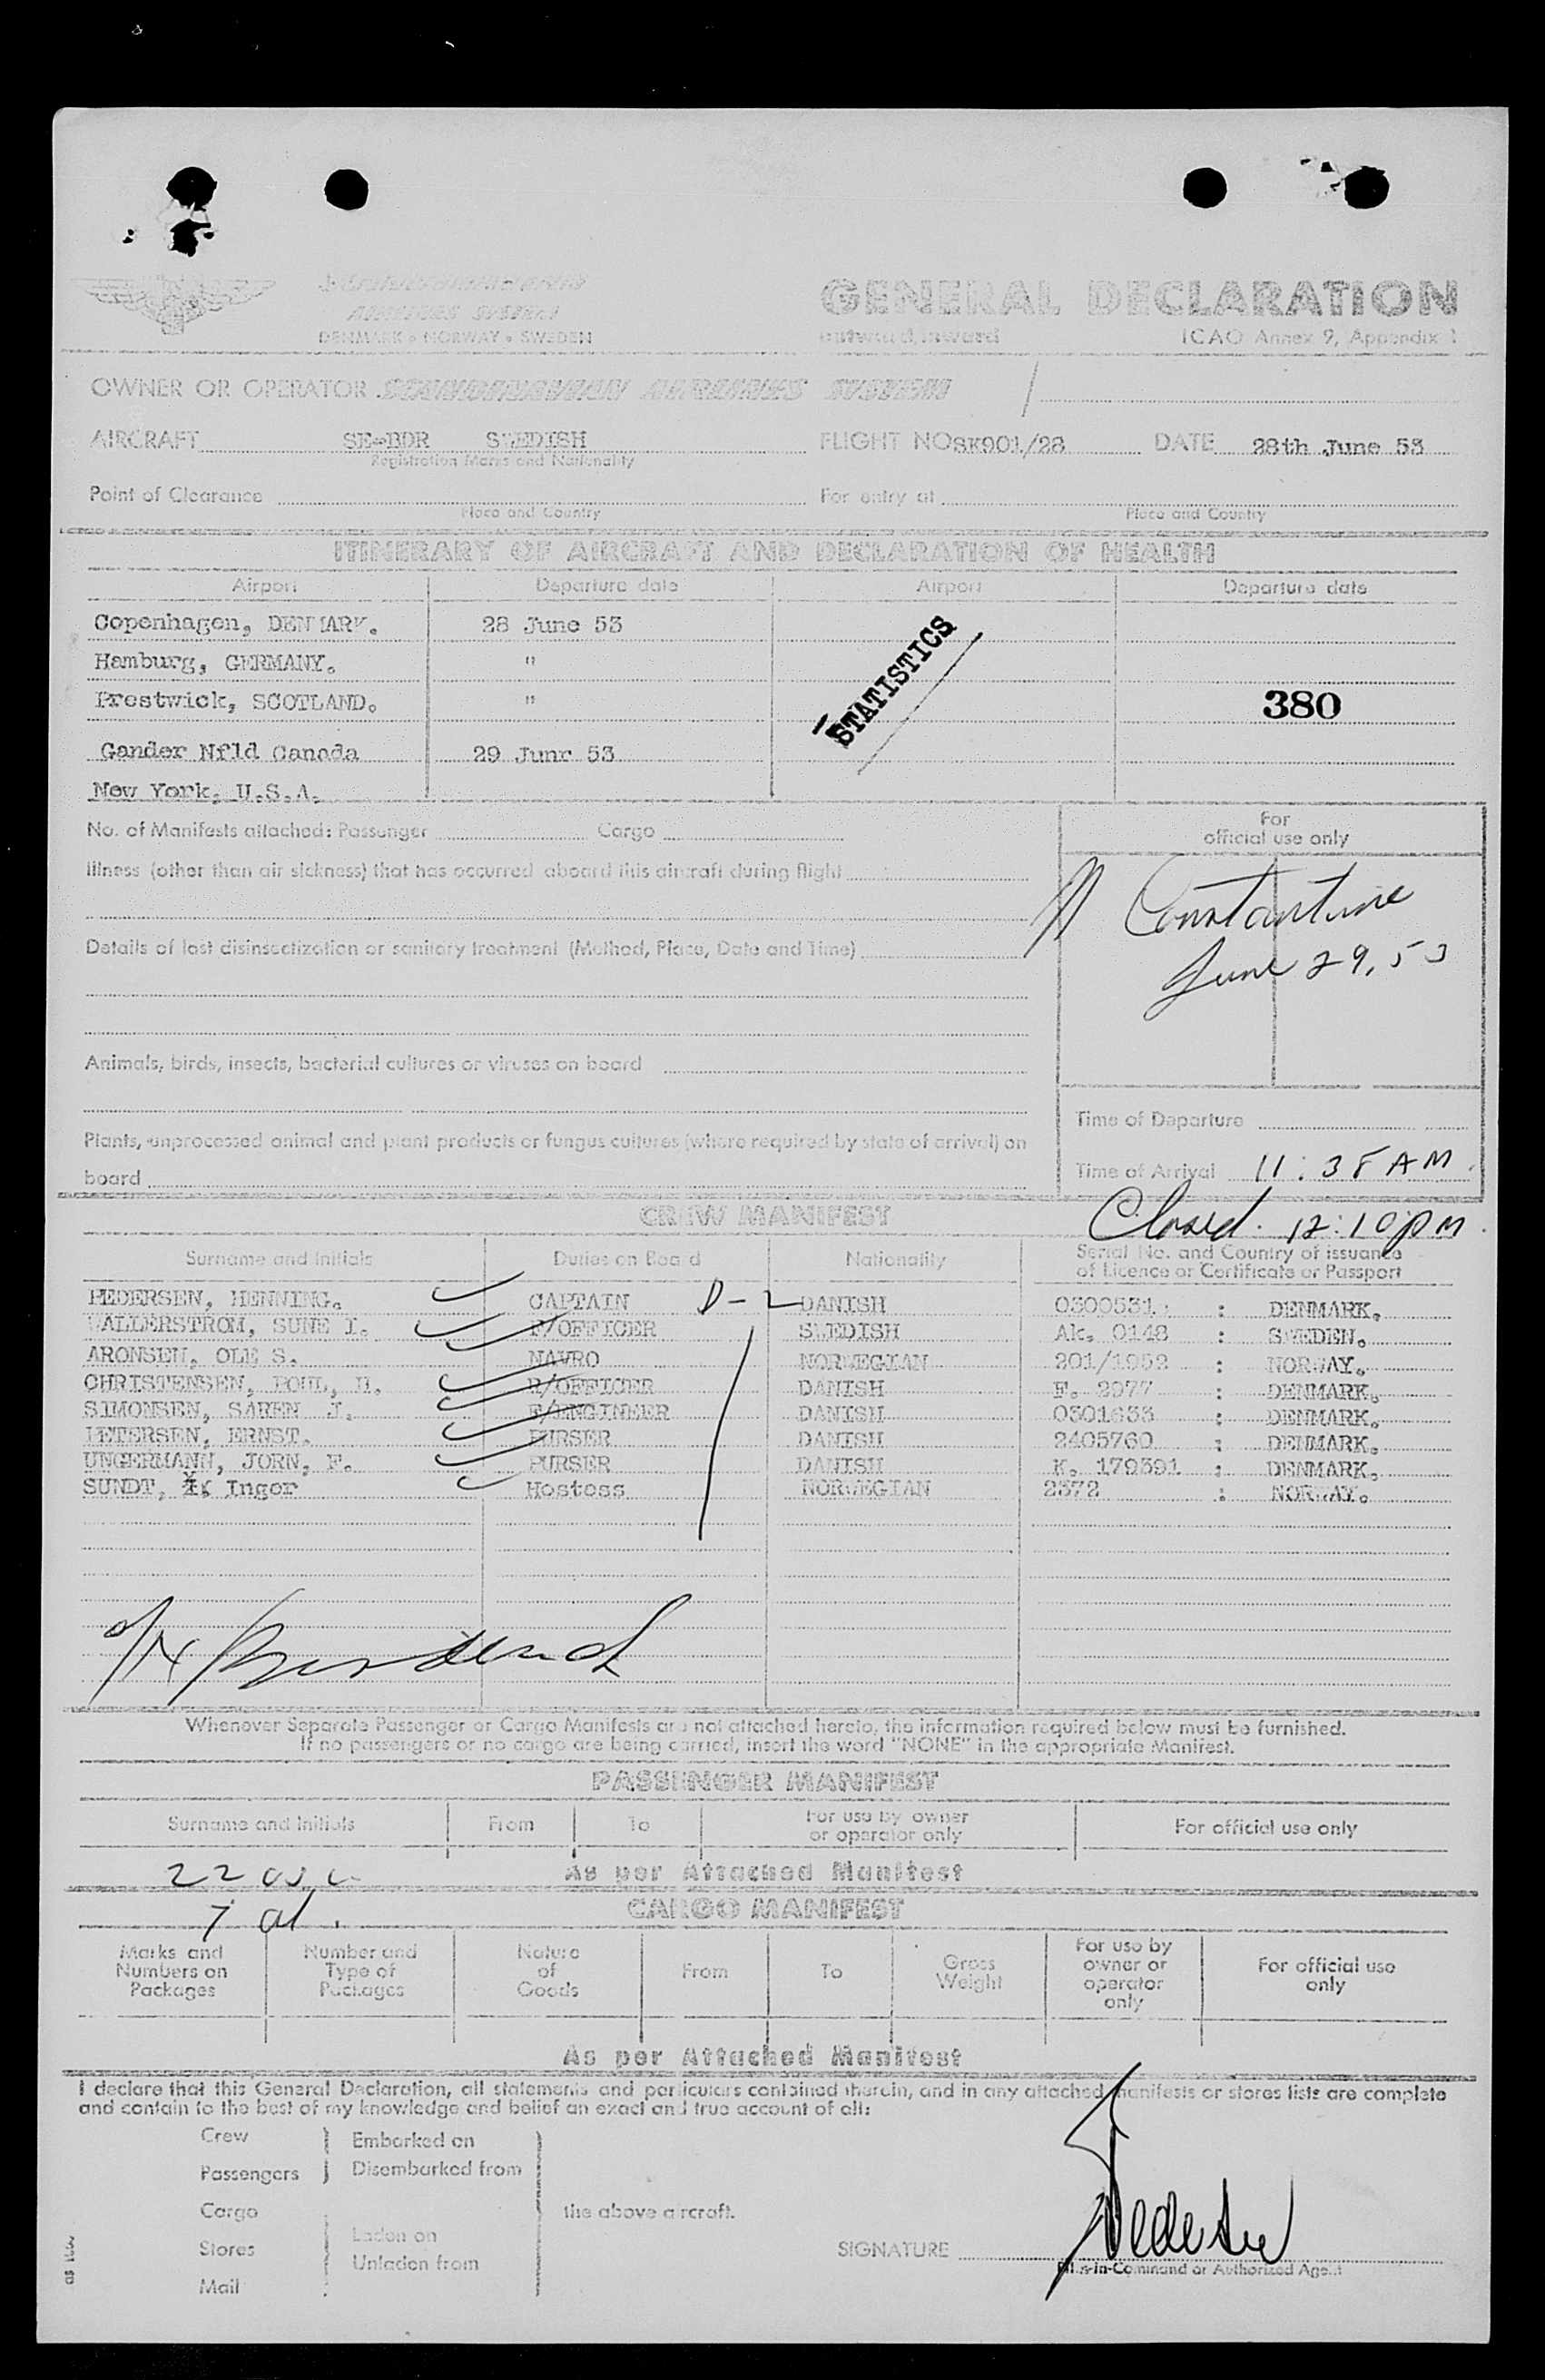 SCANDINAVIAN
AIRLINES SYSTEM
DENMARK • NORWAY • SWEDEN
GENERAL DECLARATION
outward, inward
ICAO Annex 9, Appendix 1
OWNER OR OPERATOR SCANDINAVIAN AIRLINES SYSTEM
AIRCRAFT SE-BDR SWEDISH FLIGHT NO SK901/28 DATE 28th June 53
Registration Marks and Nationality
Point of Clearance For entry at
Place and Country Place and Country
ITINERARY OF AIRCRAFT AND DECLARATION OF HEALTH
Airport Departure date Airport Departure date
Copenhagen, DENMARK. 28 June 53
Hamburg, GERMANY. "
Prestwick, SCOTLAND. " STATISTICS 380
Gander Nfld Canada 29 Junr 53
New York, U.S.A.
No. of Manifests attached: Passenger Cargo
Illness (other than air sickness) that has occurred aboard this aircraft during flight
Details of last disinsectization or sanitary treatment (Method, Place, Date and Time)
Animals, birds, insects, bacterial cultures or viruses on board
Plants, unprocessed animal and plant products or fungus cultures (where required by state of arrival) on
board
For
official use only
Constantine
June 29, 53
Time of Departure
Time of Arrival 11:38 AM
Closed 12:10 pm
CREW MANIFEST
Surname and Initials Duties on Board Nationality Serial No. and Country of issuance
of Licence or Certificate or Passport
PEDERSEN, HENNING. CAPTAIN D-2 DANISH 0300531 : DENMARK.
WALLERSTROM, SUNE I. F/OFFICER SWEDISH Ak. 0148 : SWEDEN.
ARONSEN, OLE S. NAVRO NORWEGIAN 201/1952 : NORWAY.
CHRISTENSEN, POUL, H. R/OFFICER DANISH F. 2977 : DENMARK.
SIMONSEN, SAREN J. F/ENGINEER DANISH 0301633 : DENMARK.
PETERSEN, ERNST. PURSER DANISH 2405760 : DENMARK.
UNGERMANN, JORN, F. PURSER DANISH K. 179391 : DENMARK.
SUNDT, Inger Hostess NORWEGIAN 2372 : NORWAY.
Whenever Separate Passenger or Cargo Manifests are not attached hereto, the information required below must be furnished.
If no passengers or no cargo are being carried, insert the word "NONE" in the appropriate Manifest.
PASSENGER MANIFEST
Surname and Initials From To For use by owner
or operator only For official use only
22
As per Attached Manifest
7 al.
CARGO MANIFEST
Marks and
Numbers on
Packages
Number and
Type of
Packages
Nature
of
Goods
From
To
Gross
Weight
For use by
owner or
operator
only
For official use
only
As per Attached Manifest
I declare that this General Declaration, all statements and particulars contained therein, and in any attached manifests or stores lists are complete
and contain to the best of my knowledge and belief an exact and true account of all:
Crew
Passengers
Embarked on
Disembarked from
Cargo
Stores
Mail
Laden on
Unladen from
the above aircraft.
SIGNATURE Pedersen
Pilot-in-Command or Authorized Agent